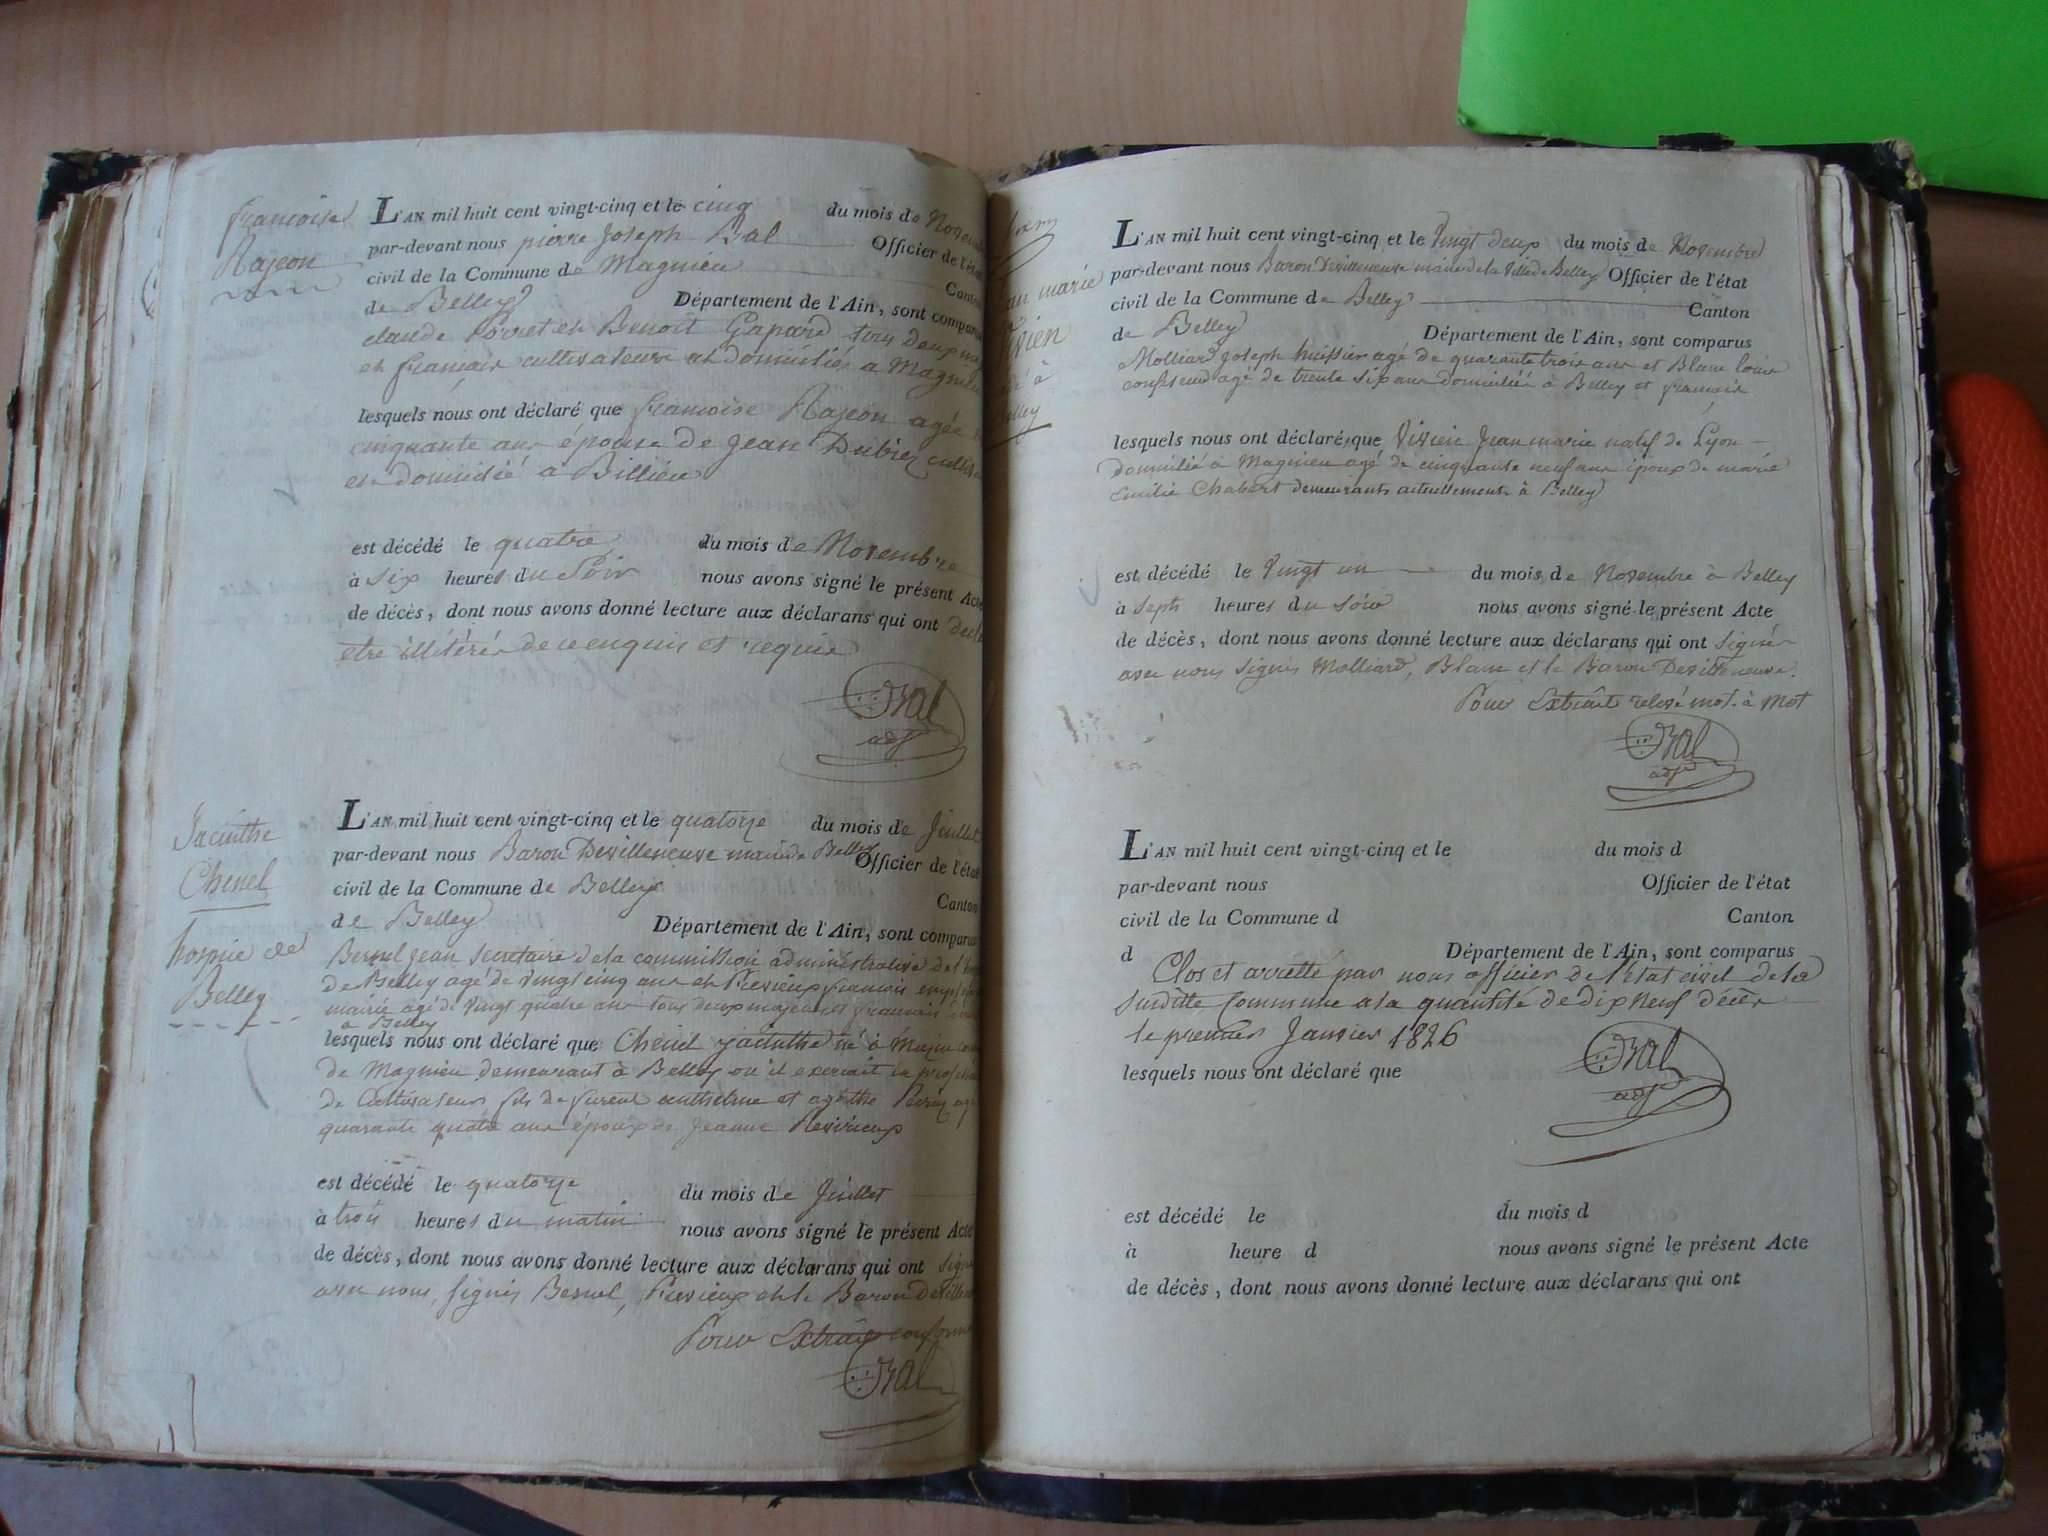 françoise
Rajeon
L'AN mil huit cent vingt-cinq et le cinq du mois de Novemb
par-devant nous pierre Joseph Bal Officier de l'état
civil de la Commune de Magnieu Canton
de Belley Département de l'Ain, sont comparus
claude et Benoit Gaparé tous deux
et français cultivateurs et domiciliés a Magnieu
lesquels nous ont déclaré que françoise Rajeon agée
cinquante ans épouse de jean Dubiez
et domicilié à Billieu
est décédé le quatre du mois de Novembre
à six heures du Soir nous avons signé le présent Acte
de décès, dont nous avons donné lecture aux déclarans qui ont
etre illitérés de ce enquis et requis
Bal
adj
Jacinthe
Chenel
hospice de
Belley
L'AN mil huit cent vingt-cinq et le quatorze du mois de Juillet
par-devant nous Baron Devilleneuve maire de Belley Officier de l'état
civil de la Commune de Belley Canton
de Belley Département de l'Ain, sont comparus
Bernel jean secretaire de la commission administrative de
de Belley agé de vingt cinq ans et français
mairie agé de vingt quatre ans tous deux majeurs et français
à Belley
lesquels nous ont déclaré que Chenel jacinthe né à
de Magnieu demeurant à Belley où il exercait la profession
de Cultivateur fils de et agathe
quarante quatre ans époux de jeanne
est décédé le quatorze du mois de Juillet
à trois heures du matin nous avons signé le présent Acte
de décès, dont nous avons donné lecture aux déclarans qui ont signé
avec nous, signés Bernel, et le Baron
Pour Extrait conforme
Bal
au marie
ivien
à
elley
L'AN mil huit cent vingt-cinq et le Vingt deux du mois de Novembre
par-devant nous Baron Devilleneuve maire de la ville de Belley Officier de l'état
civil de la Commune de Belley Canton
de Belley Département de l'Ain, sont comparus
Molliard Joseph huissier agé de quarante trois ans et Blanc louis
confiseur agé de trente six ans domiciliés à Belley et français
lesquels nous ont déclaré que Vivien Jean marie natif de Lyon
domicilié à Magnieu agé de cinquante neuf ans époux de marie
Emilie Chabert demeurants actuellement à Belley
est décédé le Vingt un du mois de Novembre à Belley
à sept heures du soir nous avons signé le présent Acte
de décès, dont nous avons donné lecture aux déclarans qui ont signés
avec nous signés Molliard, Blanc et le Baron Devilleneuve.
Pour Extrait relevé mot à Mot
Bal
adj
L'AN mil huit cent vingt-cinq et le du mois d
par-devant nous Officier de l'état
civil de la Commune d Canton
d Département de l'Ain, sont comparus
Clos et arretté par nous officier de l'état civil de la
Susditte Commune a la quantité de dix Neuf décès
le premier Janvier 1826
Bal
adj
lesquels nous ont déclaré que
est décédé le du mois d
à heure d nous avons signé le présent Acte
de décès, dont nous avons donné lecture aux déclarans qui ont